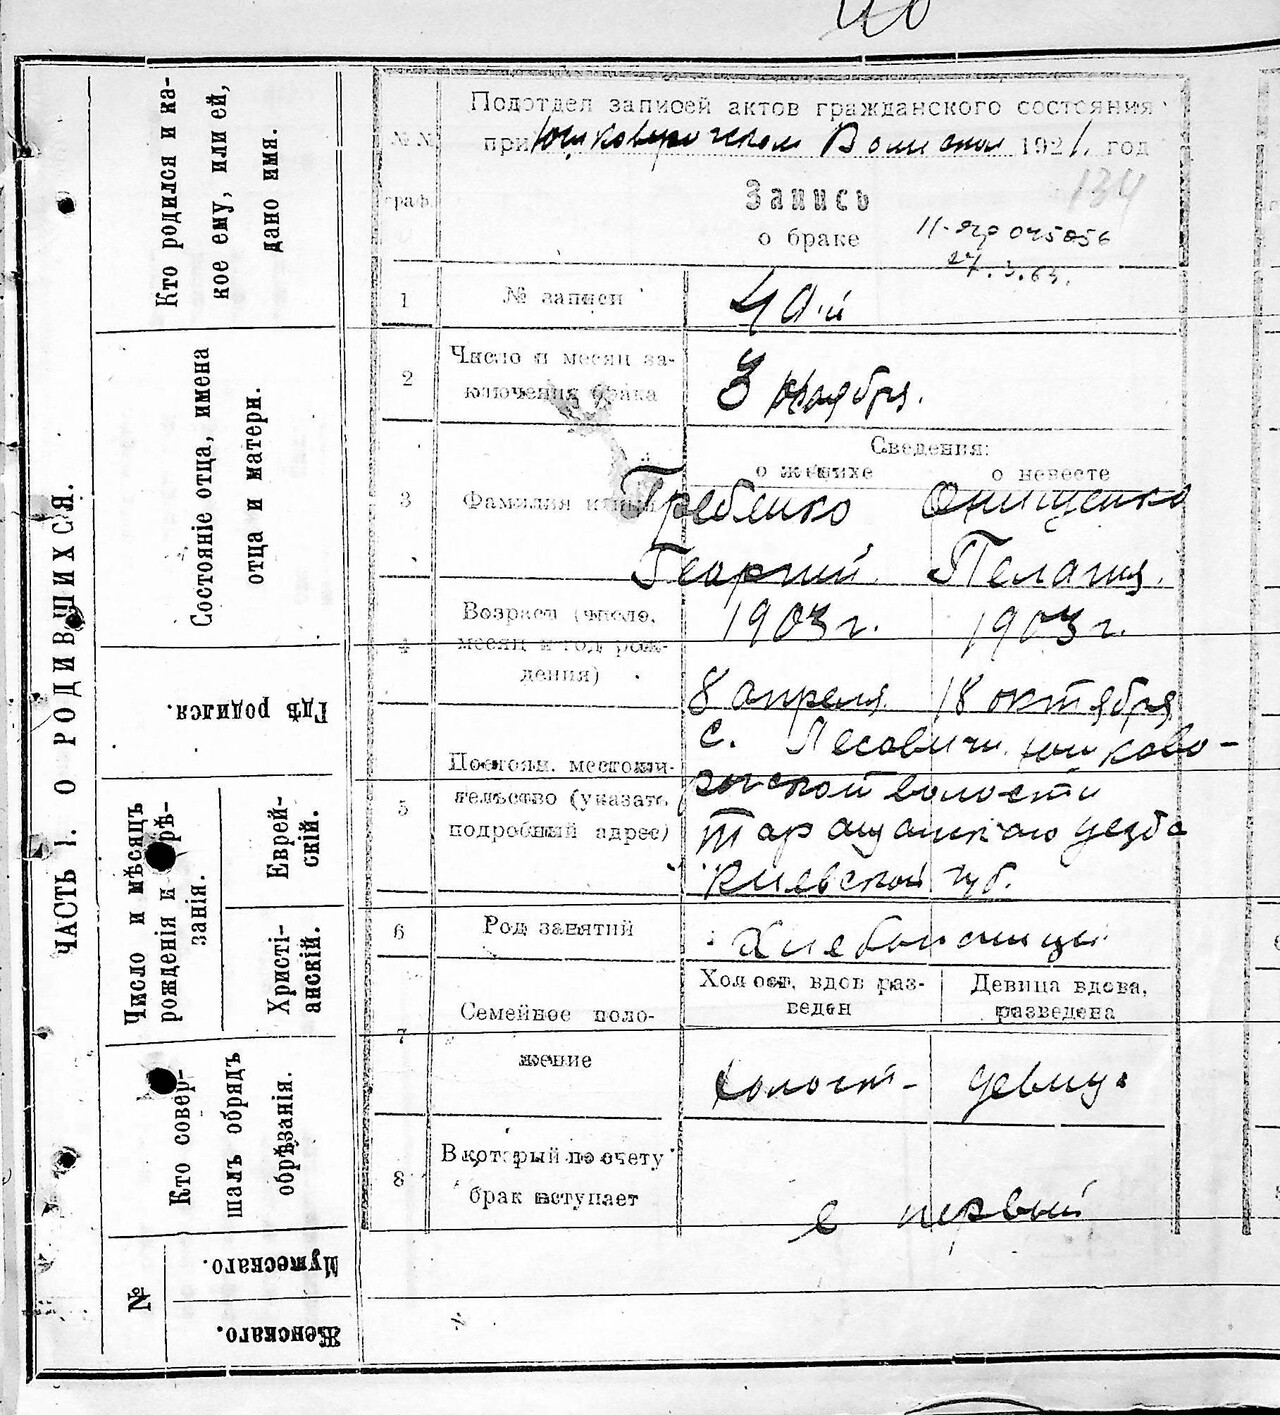 40
ЧАСТЬ I. О РОДИВШИХСЯ.
Кто родился и ка-
кое ему, или ей,
дано имя.
Состояніе отца, имена
отца и матери.
Гдѣ родился.
Число и мѣсяцъ
рожденія и обрѣ-
занія.
Еврей-
скій.
Христі-
анскій.
Кто совер-
шалъ обрядъ
обрѣзанія.
№
Мужескаго.
Женскаго.
Подотдел записей актов гражданского состояния
при Волисполком 1921 год
№№
граф.
134
Запись
о браке
27.3.63.
1
№ записи
40-й
2
Число и месяц за-
ключения брака
3 ноября.
Сведения:
о женихе о невесте
3
Фамилия и имя
Гребенко Онищенко
Георгий Пелагия.
4
Возраст (число,
месяц и год рож-
дения)
1903 г. 1903 г.
8 апреля 18 октября
5
Постоян. местожи-
тельство (указать
подробный адрес)
с. Лесовичи Юшково-
рогской волости
Таращанского уезда
Киевской губ.
6
Род занятий
Хлебопашцы
7
Семейное поло-
жение
Холост, вдов раз-
веден
Девица вдова,
разведена
Холост- девиц.
8
В который по счету
брак вступает
в первый